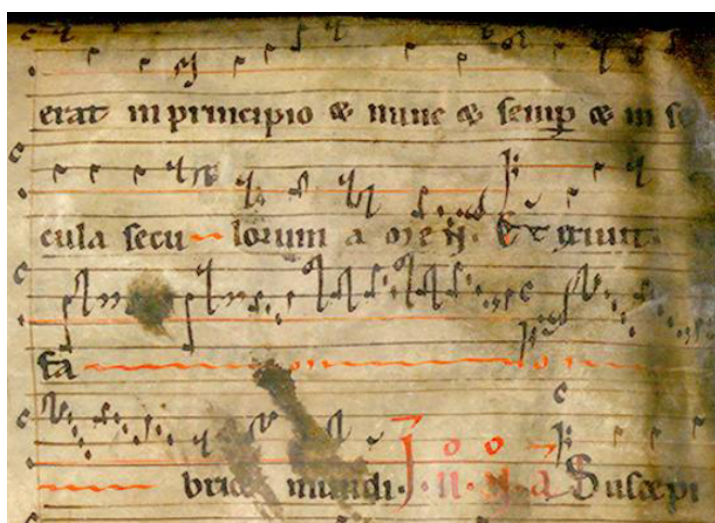 erat in principio & nunc & semp & in se
cula seculorum a men. Et
fa
brice mundi. Suscepi